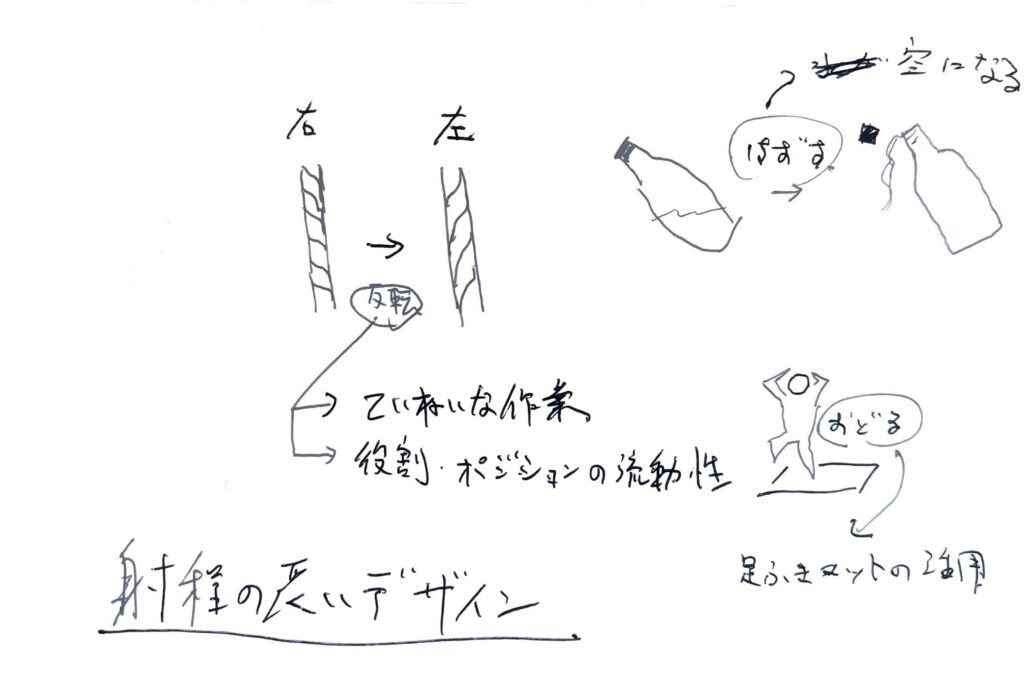 空になる
右 左
はずす
反転
ていねいな作業
おどる
役割・ポジションの流動性
足ふきマットの活用
射程の長いデザイン